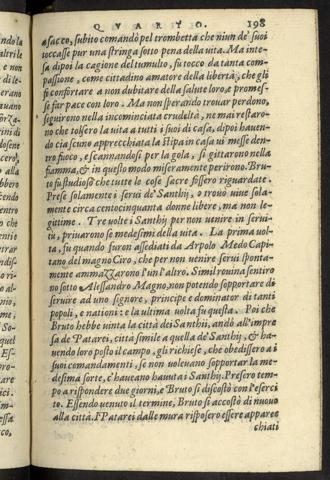 QVARTO. 198
a sacco, subito comandò pel trombetta che niun de' suoi
toccasse pur una stringa sotto pena della vita. Ma inte-
sa dipoi la cagione del tumulto, fu tocco da tanta com-
passione, come cittadino amatore della libertà, che gli
fè confortare a non dubitare della salute loro, e promes-
se fur pace con loro. Ma non sperando trovar perdono,
seguirono nella incominciata crudeltà, ne mai restaro-
no che tolsero la vita a tutti i suoi di casa, dipoi hauen-
do ciascuno apprecchiata la stipa in casa vi messe den-
tro fuoco, e scannandosi per la gola, si gittarono nella
fiamma, & in questo modo miseramente perirono. Bru-
to fu studioso che tutte le cose sacre fissero riguardate.
Prese solamente i serui de' Santhij, e trouò viue sola-
mente circa centocinquanta donne libere, ma non le-
gitime. Tre volte i Santhij per non venire in serui-
tù, priuarono se medesimi della vita. La prima vol-
ta, fu quando furon assediati da Arpolo Medo Capi-
tano del magno Ciro, che per non venire serui spónta-
mente ammazzarono l'un l'altro. Simil rouina sentiro
no sotto Alessandro Magno, non potendo sopportare di
seruire ad uno signore, principe e dominator di tanti
popoli, e nationi: e la ultima volta fu questa. Poi che
Bruto hebbe vinta la città dei Santhii, andò all'impre
sa de Patarei, città simile a quella de' Santhij, & ha-
uendo loro posto il campo, gli richiese, che obedissero a i
suoi comandamenti, se non voleuano sopportar la me-
desima sorte, c'haueano hauuta i Santhij. Presero tem-
po a rispondere due giorni, e Bruto si discostò con l'eserci
to. Essendo venuto il termine, Bruto si accostò di nuouo
alla città. I Patarei dalle mura risposero essere apparec
chiati